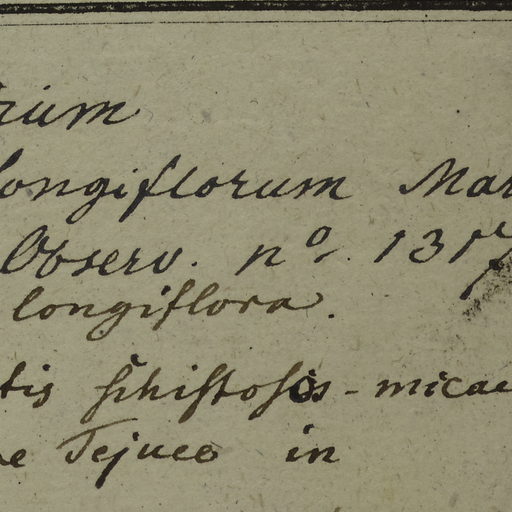 rium
longiflorum Mar
Observ. nº. 1317
longiflora.
tis schistosis-micac
ne Tejuco in